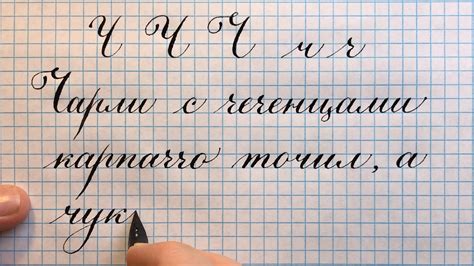 Ч Ч Ч ч ч
Чарли с чеченцами
карпаччо точил, а
чук